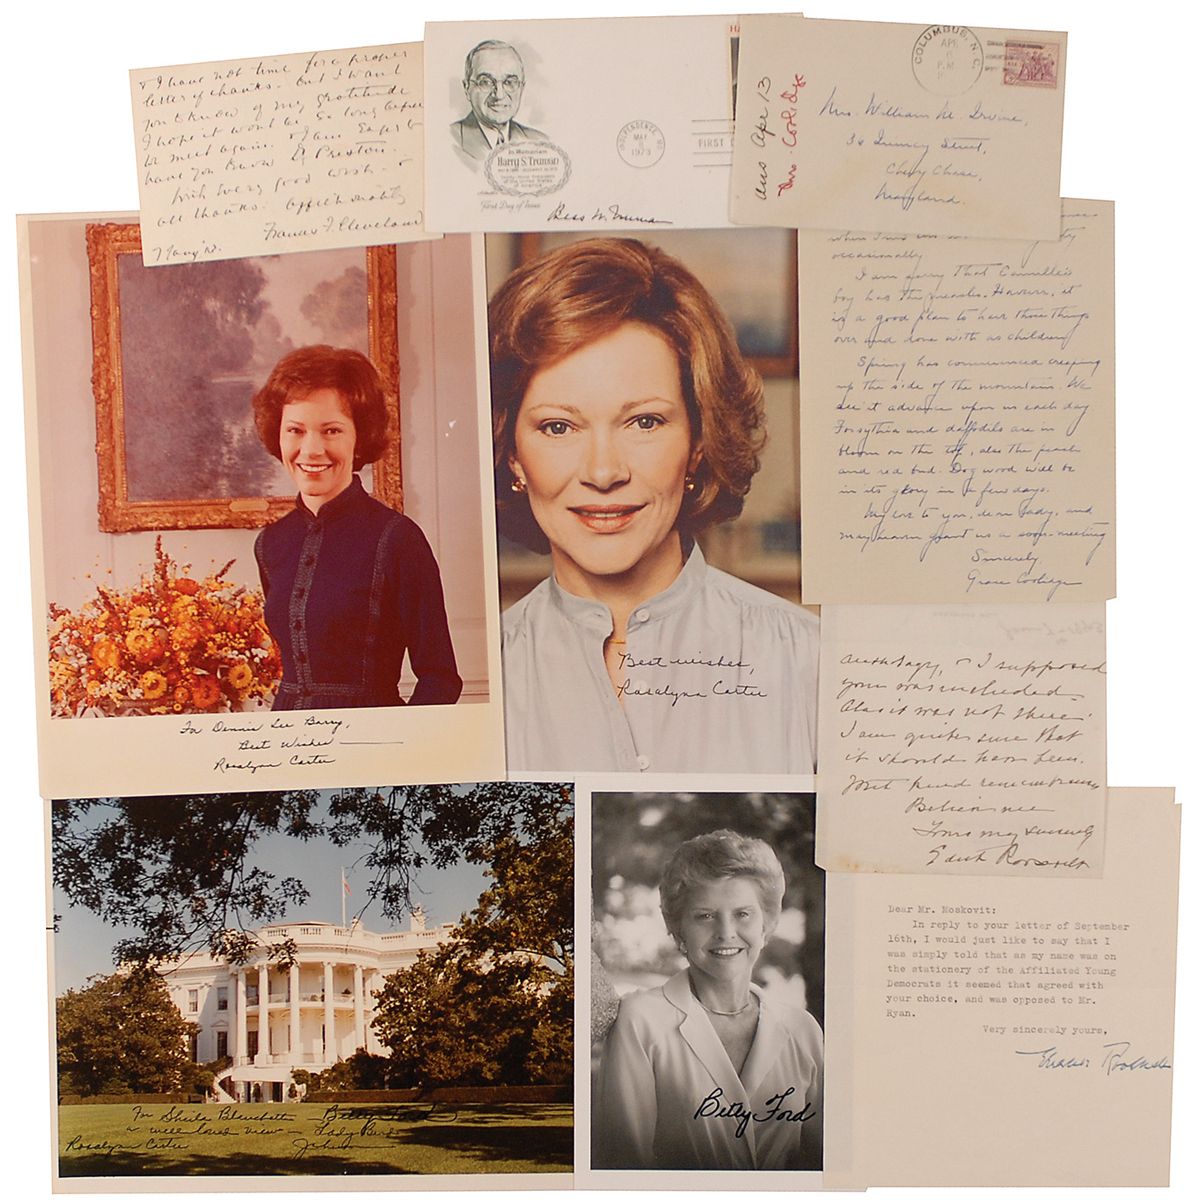 & I have not time for a proper
letter of thanks - but I want
you to know of my gratitude
I hope it wont be so long before
we meet again.
have you know Dr Preston.
With every good wish - &
all thanks. Affectionately
Frances F. Cleveland
In Memoriam
Harry S. Truman
First Day of Issue
INDEPENDENCE, MO.
MAY
8
1973
FIRST
Bess W. Truman
Ans Apr 13
Mrs. Coolidge
COLUMBUS, N.C.
APR
P.M.
Mrs. William M. Irvine,
36 Quincy Street,
Chevy Chase,
Maryland.
occasionally
I am sorry that Camille's
boy has the measles. However, it
is a good plan to have those things
over and done with as children
Spring has commenced creeping
up the side of the mountain. We
see it advance upon us each day
Forsythia and daffodils are in
bloom on the top, also the peach
and red bud. Dogwood will be
in its glory in a few days.
My love to you, dear lady, and
may heaven grant us a soon-meeting
Sincerely,
Grace Coolidge
Best wishes,
Rosalynn Carter
For Dennie Lee Barry,
Best Wishes
Rosalynn Carter
anthology, & I supposed
you was included
Alas it was not there.
I am quite sure that
it should have been.
With kind remembrances
Believe me
Yours very sincerely
Edith Roosevelt
For Sheila Blanchette
a well loved view -
Betty Ford
Lady Bird
Johnson
Rosalynn Carter
Betty Ford
Dear Mr. Moskovit:
In reply to your letter of September
16th, I would just like to say that I
was simply told that as my name was on
the stationery of the Affiliated Young
Democrats it seemed that agreed with
your choice, and was opposed to Mr.
Ryan.
Very sincerely yours,
Eleanor Roosevelt